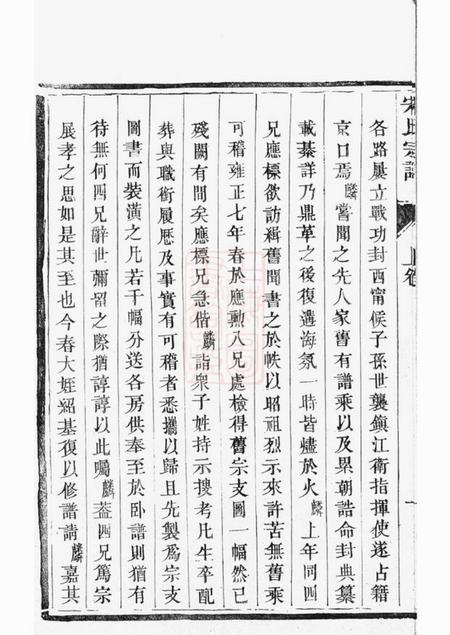 宗譜
上卷
各路屢立戰功封西甯候子孫世襲鎭江衛指揮使遂占籍
京口焉麟嘗聞之先人家舊有譜乘以及累朝誥命封典纂
載綦詳乃鼎革之後復遘海氛一時皆燼於火麟上年同四
兄應標欲訪緝舊聞書之於帙以昭祖烈示來許苦無舊乘
可稽雍正七年春於應勲八兄處檢得舊宗支圖一幅然已
殘闕有間矣應標兄急偕麟詣衆子姓持示搜考凡生卒配
葬與職銜履歷及事實有可稽者悉攟以歸且先製爲宗支
圖書而装潢之凡若干幅分送各房供奉至於卧譜則猶有
待無何四兄辭世彌留之際猶諄諄以此囑麟葢四兄篤宗
展孝之思如是其至也今春大姪紹基復以修譜請麟嘉其